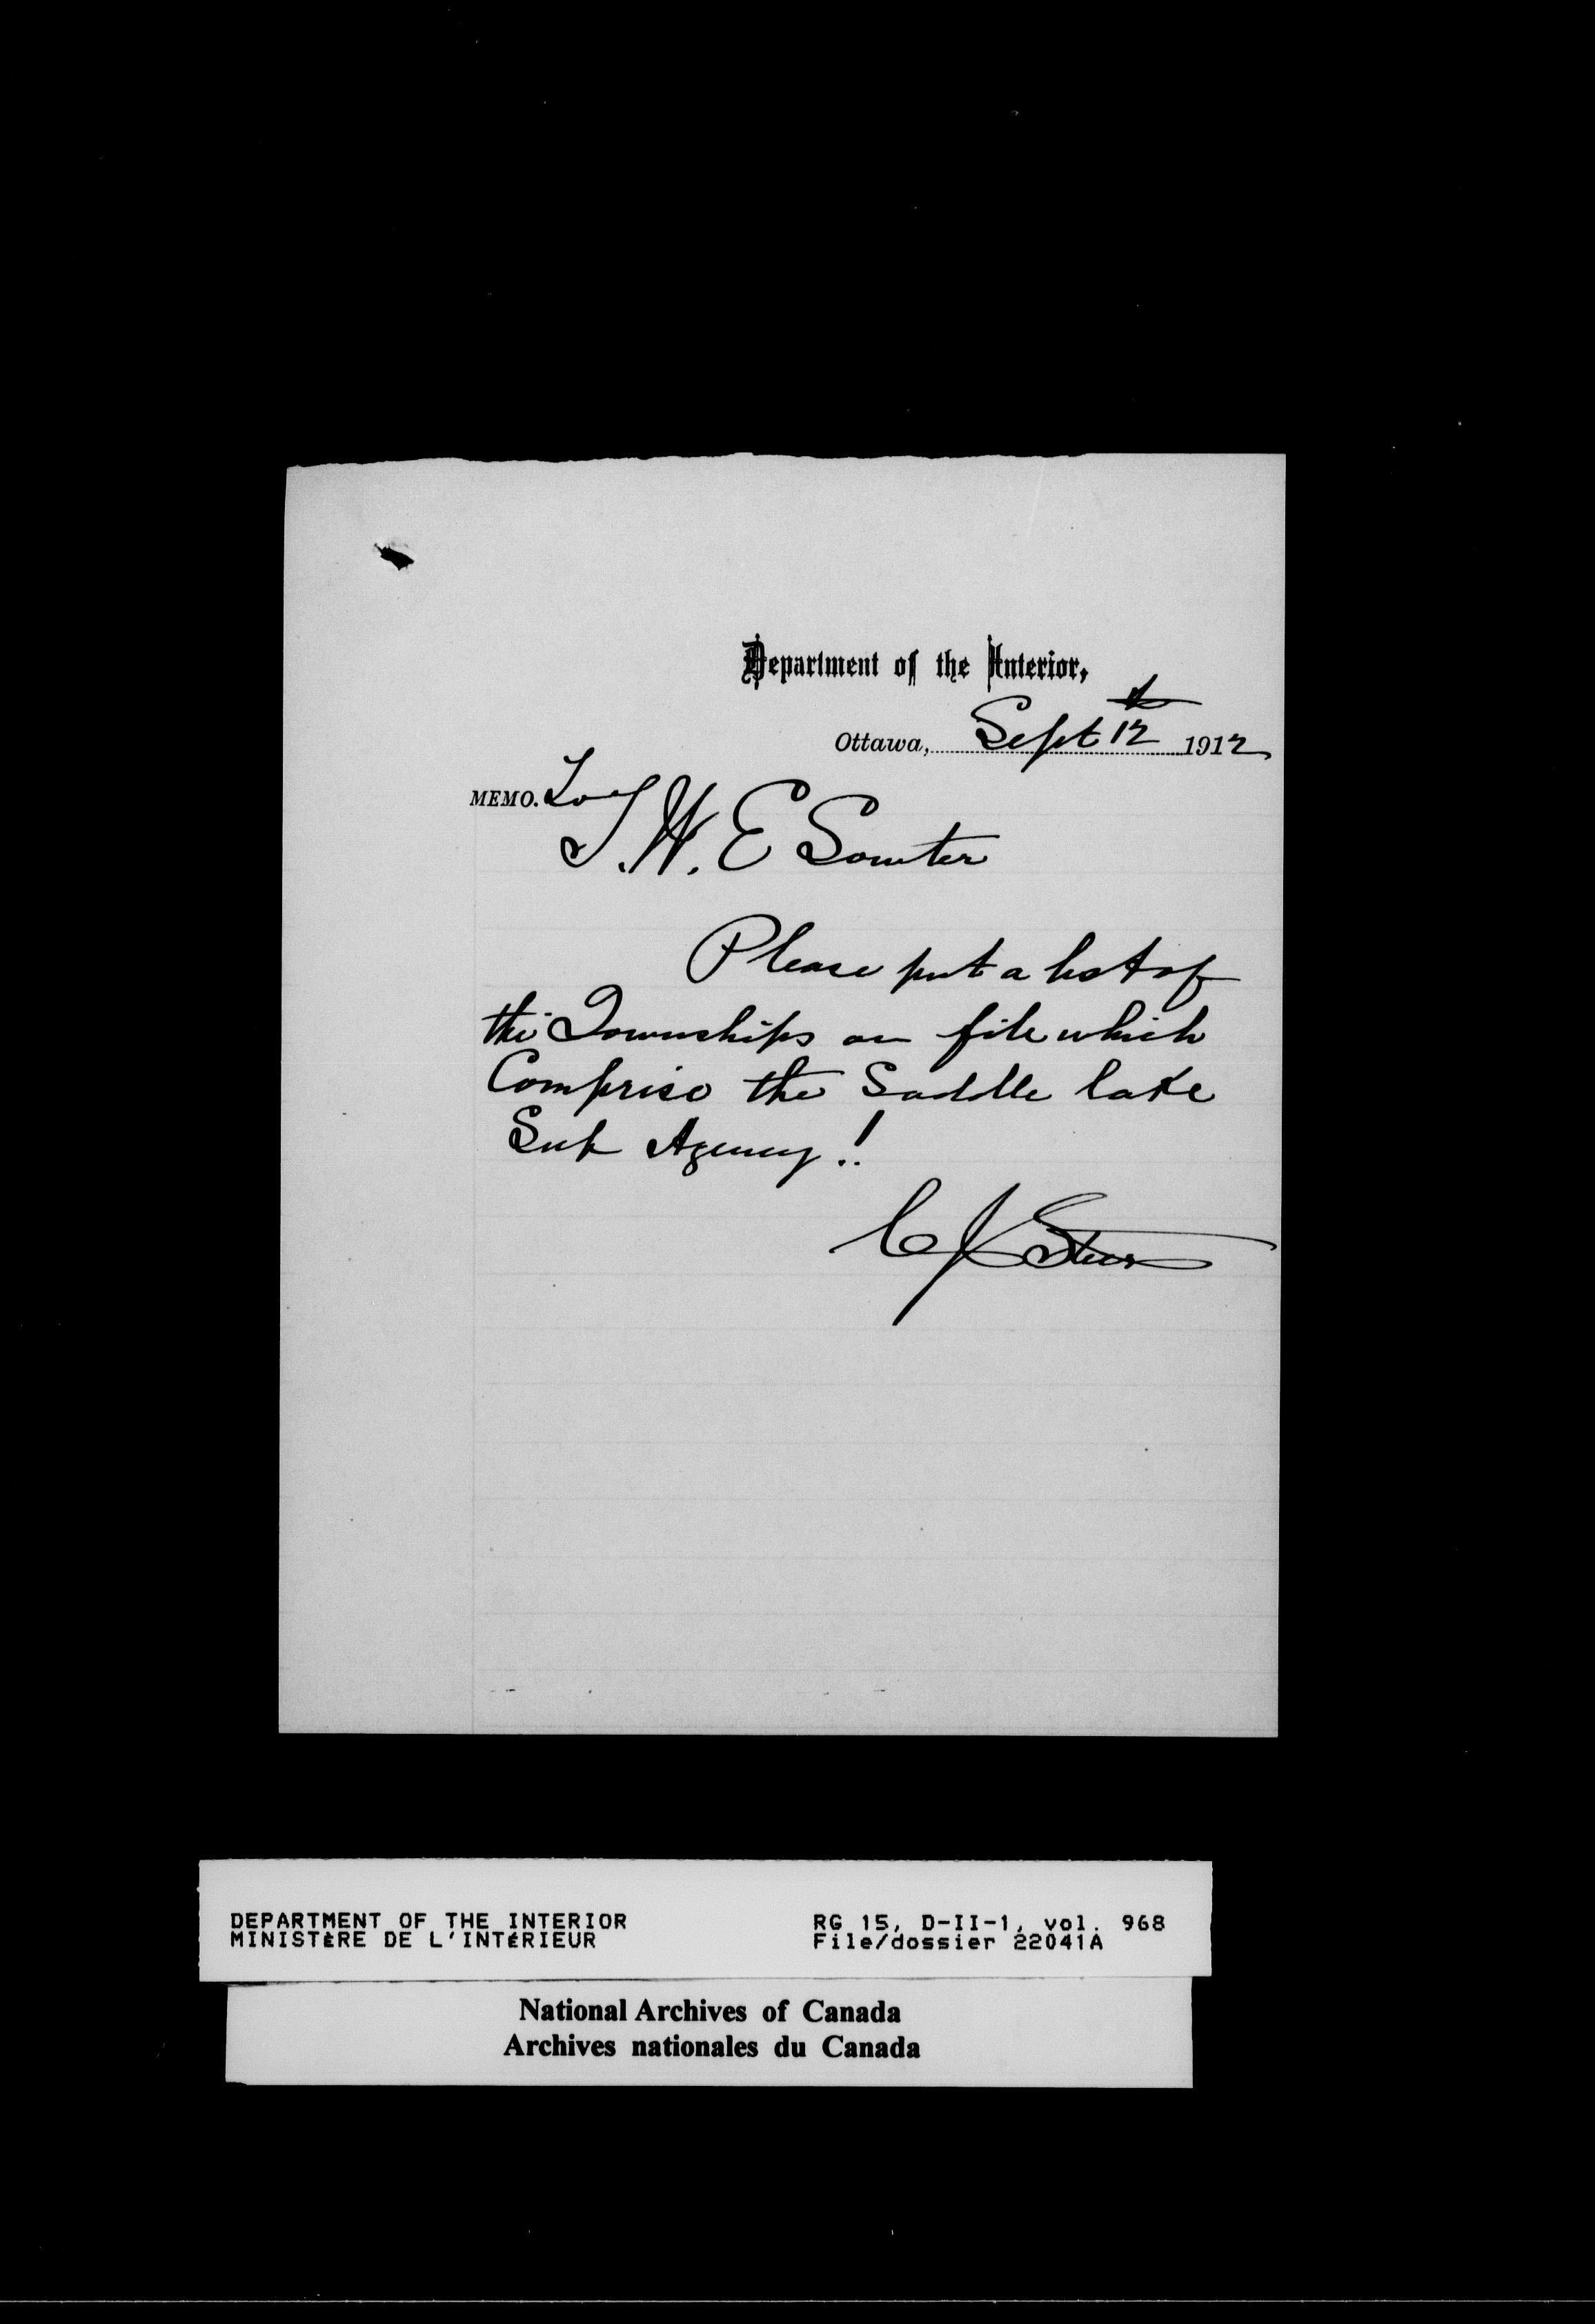 Department of the Interior,
Ottawa, Sept 12th 1912
MEMO. To
T. W. E Sowter
Please put a list of
the Townships on file which
Comprise the Saddle lake
Sub Agency!!
C J Steers
DEPARTMENT OF THE INTERIOR
MINISTÈRE DE L'INTÉRIEUR
RG 15, D-II-1, vol. 968
File/dossier 22041A
National Archives of Canada
Archives nationales du Canada